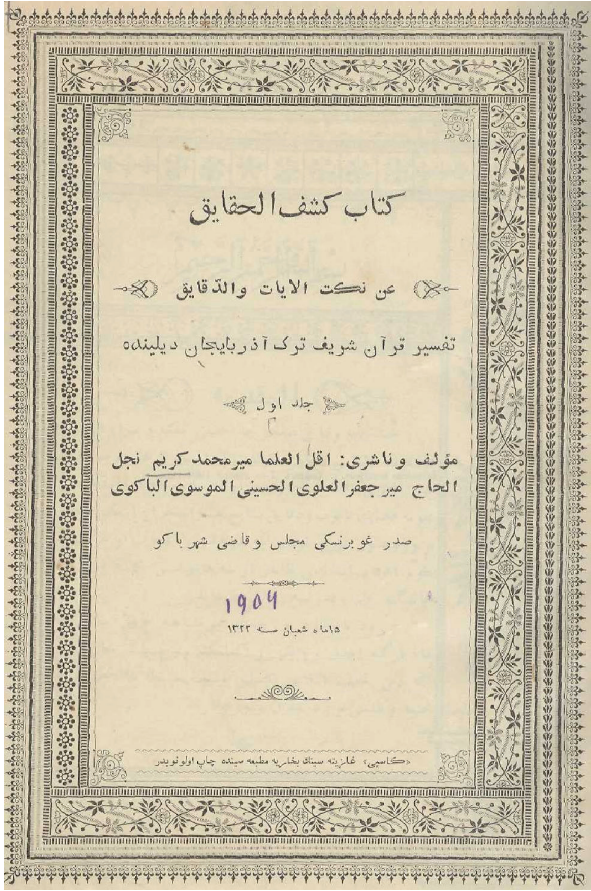 كتاب كشف الحقايق
عن نكت الايات والدقايق
تفسير قرآن شريف ترك آذربايجان ديلينده
جلد اول
مؤلف و ناشرى: اقل العلما ميرمحمد كريم نجل
الحاج ميرجعفر العلوى الحسينى الموسوى الباكوى
صدر غوبرنسكى مجلس و قاضى شهر باكو
1904
ماه شعبان سنه ١٣٢٢
«كاسپى» غازيته سينك بخاريه مطبعه سينده چاپ اولونويدر